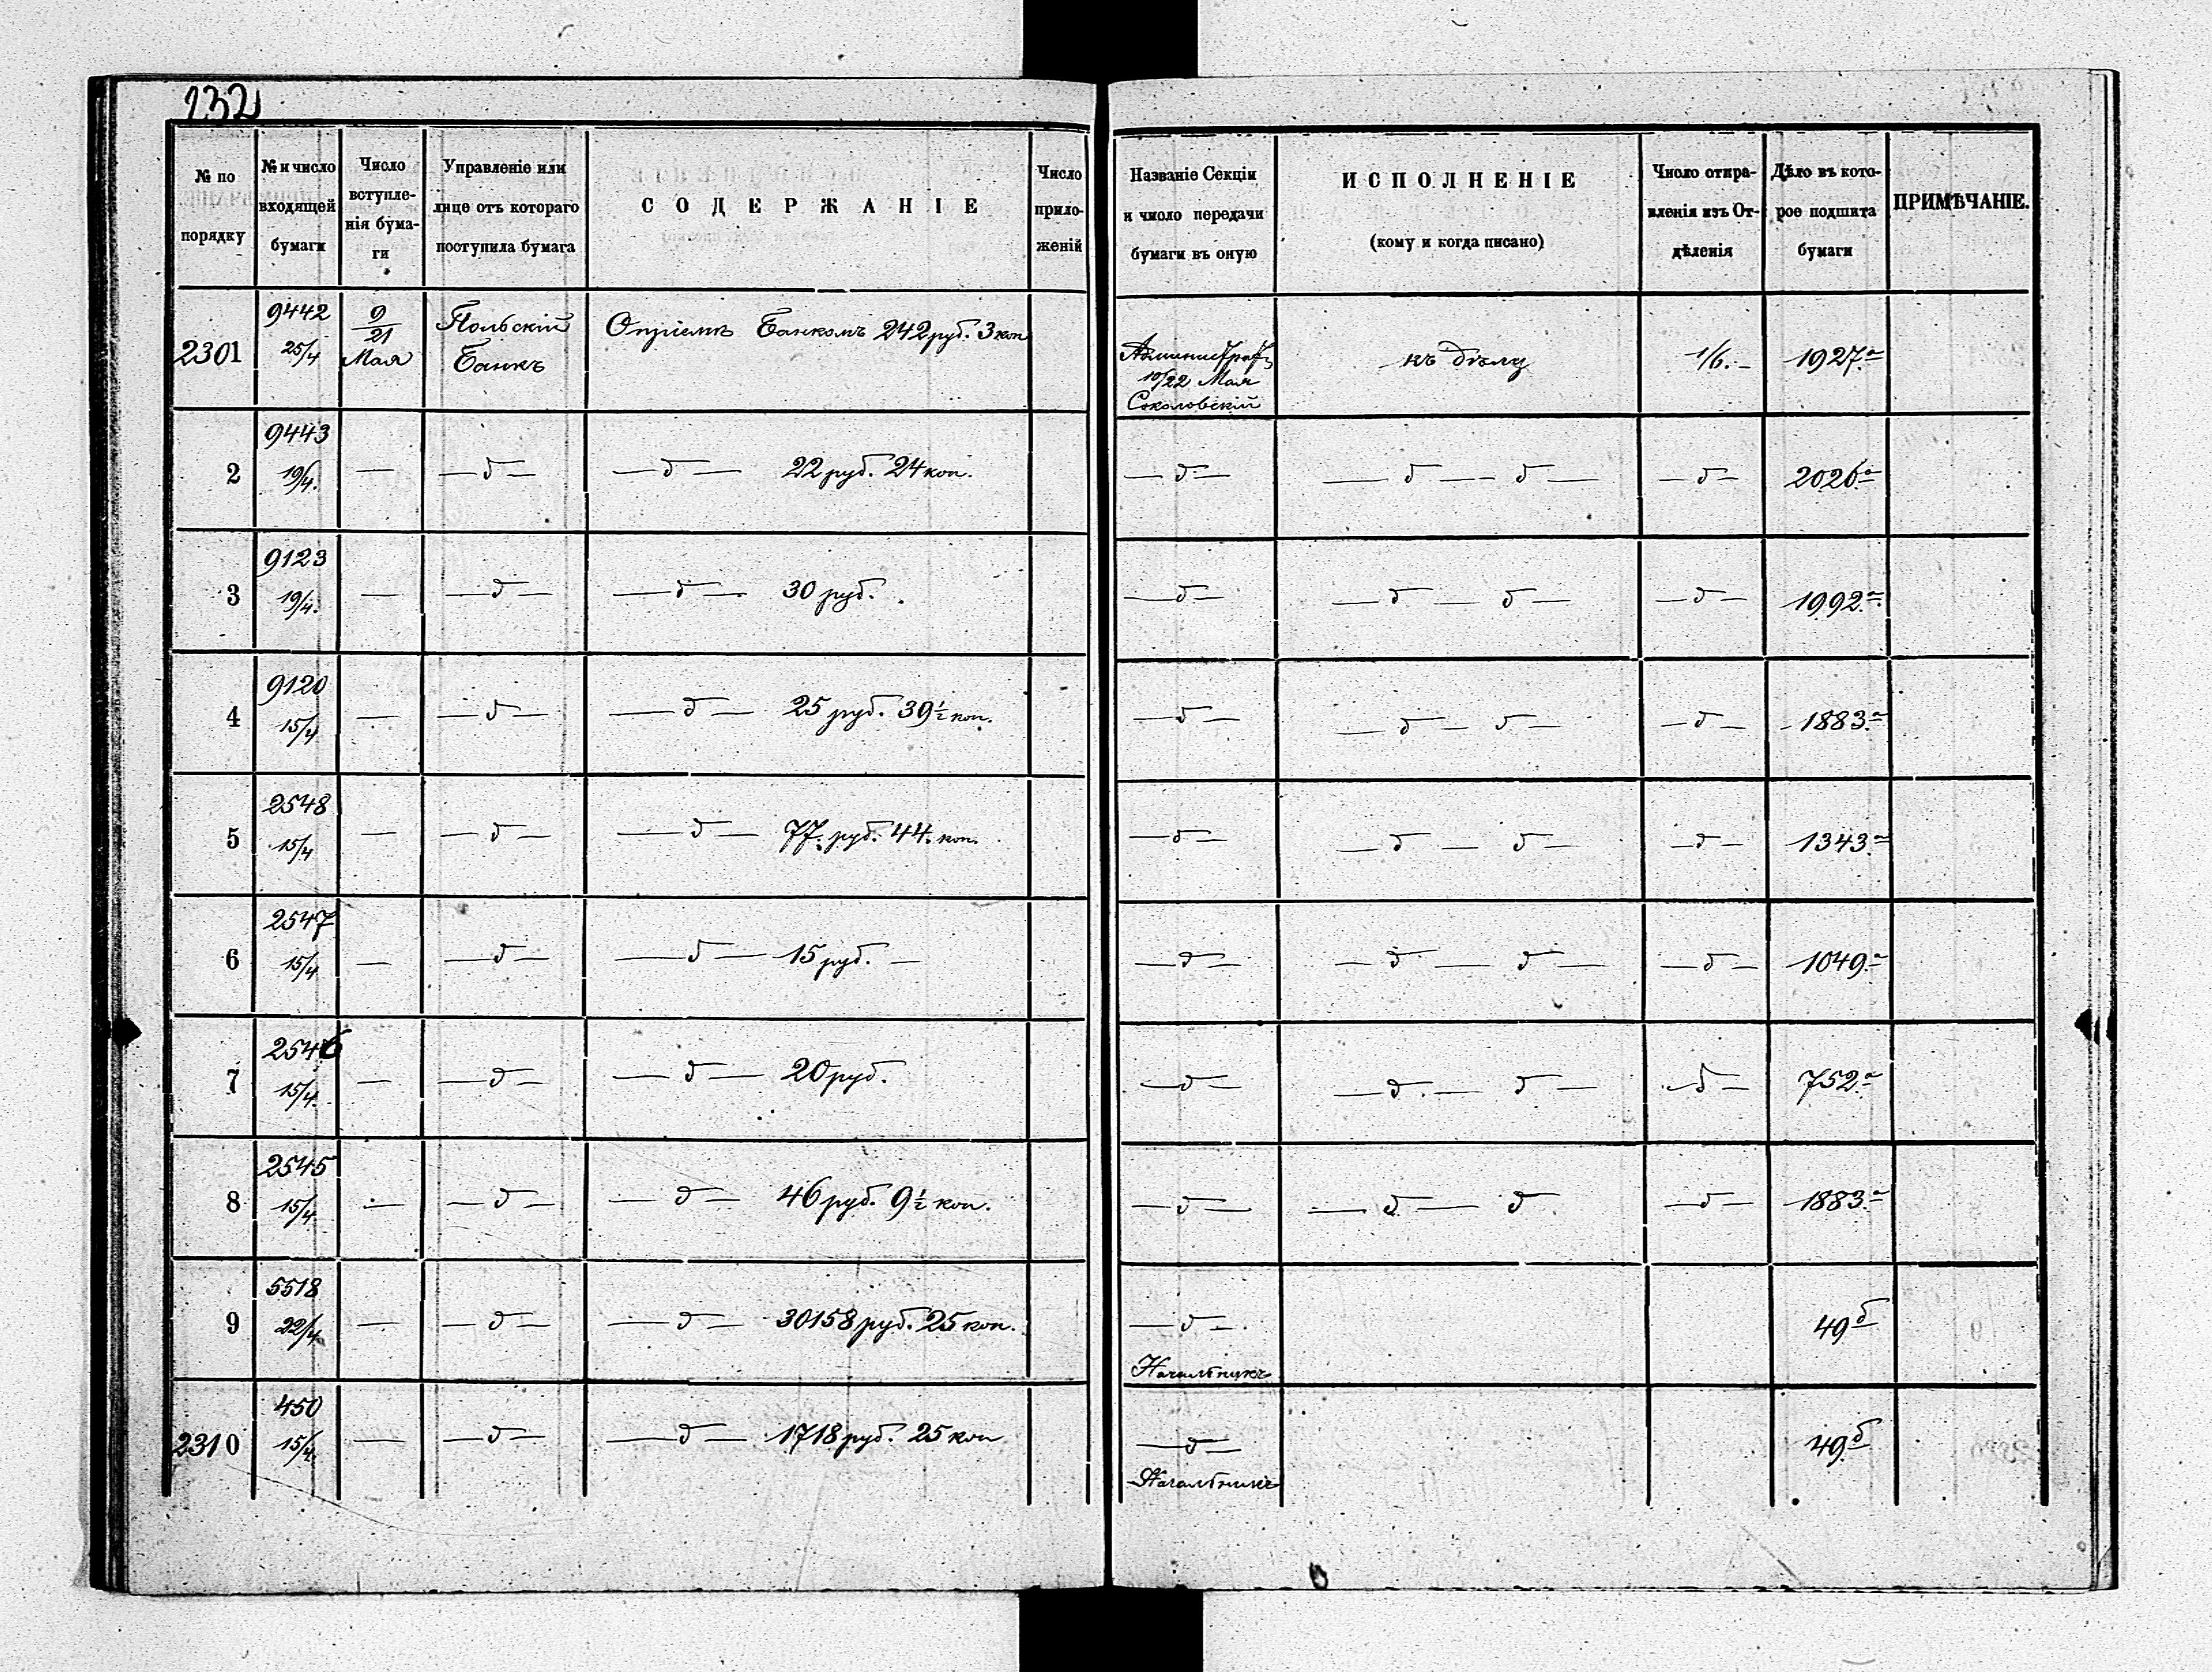 132
№ по порядку
№ и число входящей бумаги
Число вступле-нія бума-ги
Управленіе или лице отъ котораго поступила бумага
СОДЕРЖАНІЕ
Число прило-женій
Названіе Секціи и число передачи бумаги въ оную
ИСПОЛНЕНІЕ (кому и когда писано)
Число отпра-вленія изъ От-дѣленія
Дѣло въ кото-рое подшита бумаги
ПРИМѢЧАНІЕ.
2301 9442 25/4 9/21 Мая Польскій Банкъ Опріемѣ Банкомъ 242 руб. 3 коп 10/22 Мая Соколовскій къ дѣлу 1/6.- 1927.а
2 9443 19/4. — — д — — д — 22 руб. 24 коп. — д — — д — — д — — д — 2026а
3 9123 19/4. — — д — — д — 30 руб. — д — — д — д — — д — 1992.а
4 9120 15/4 — — д — — д — 25 руб. 39½ коп. — д — — д — д — — д — 1883.а
5 2548 15/4 — — д — — д — 77. руб. 44. коп. — д — — д — д — — д — 1343.а
6 2547 15/4 — — д — — д — 15 руб. — — д — — д — д — — д — 1049.а
7 2546 15/4. — — д — — д — 20 руб. — д — — д. — д — — д — 752.а
8 2545 15/4 — — д — — д — 46 руб. 9½ коп. — д — — д — д — д — 1883.а
9 5518 22/4. — — д — — д — 30158 руб. 25 коп. — д — Начальникъ 49 б
2310 450 15/4. — — д — — д — 1718 руб. 25 коп — д — Начальникъ 49. б